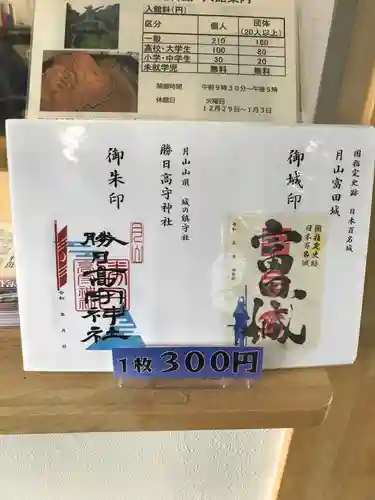 入館料(円)
区分 個人 団体(20人以上)
一般 210 160
高校・大学生 100 80
小学・中学生 30 20
未就学児 無料 無料
開館時間 午前9時30分~午後5時
休館日 火曜日
12月29日~1月3日
国指定史跡 日本百名城
月山富田城
御城印
国指定史跡
日本百名城
富田城
月山山頂 城の鎮守社
勝日高守神社
御朱印
勝日高守神社
1枚300円